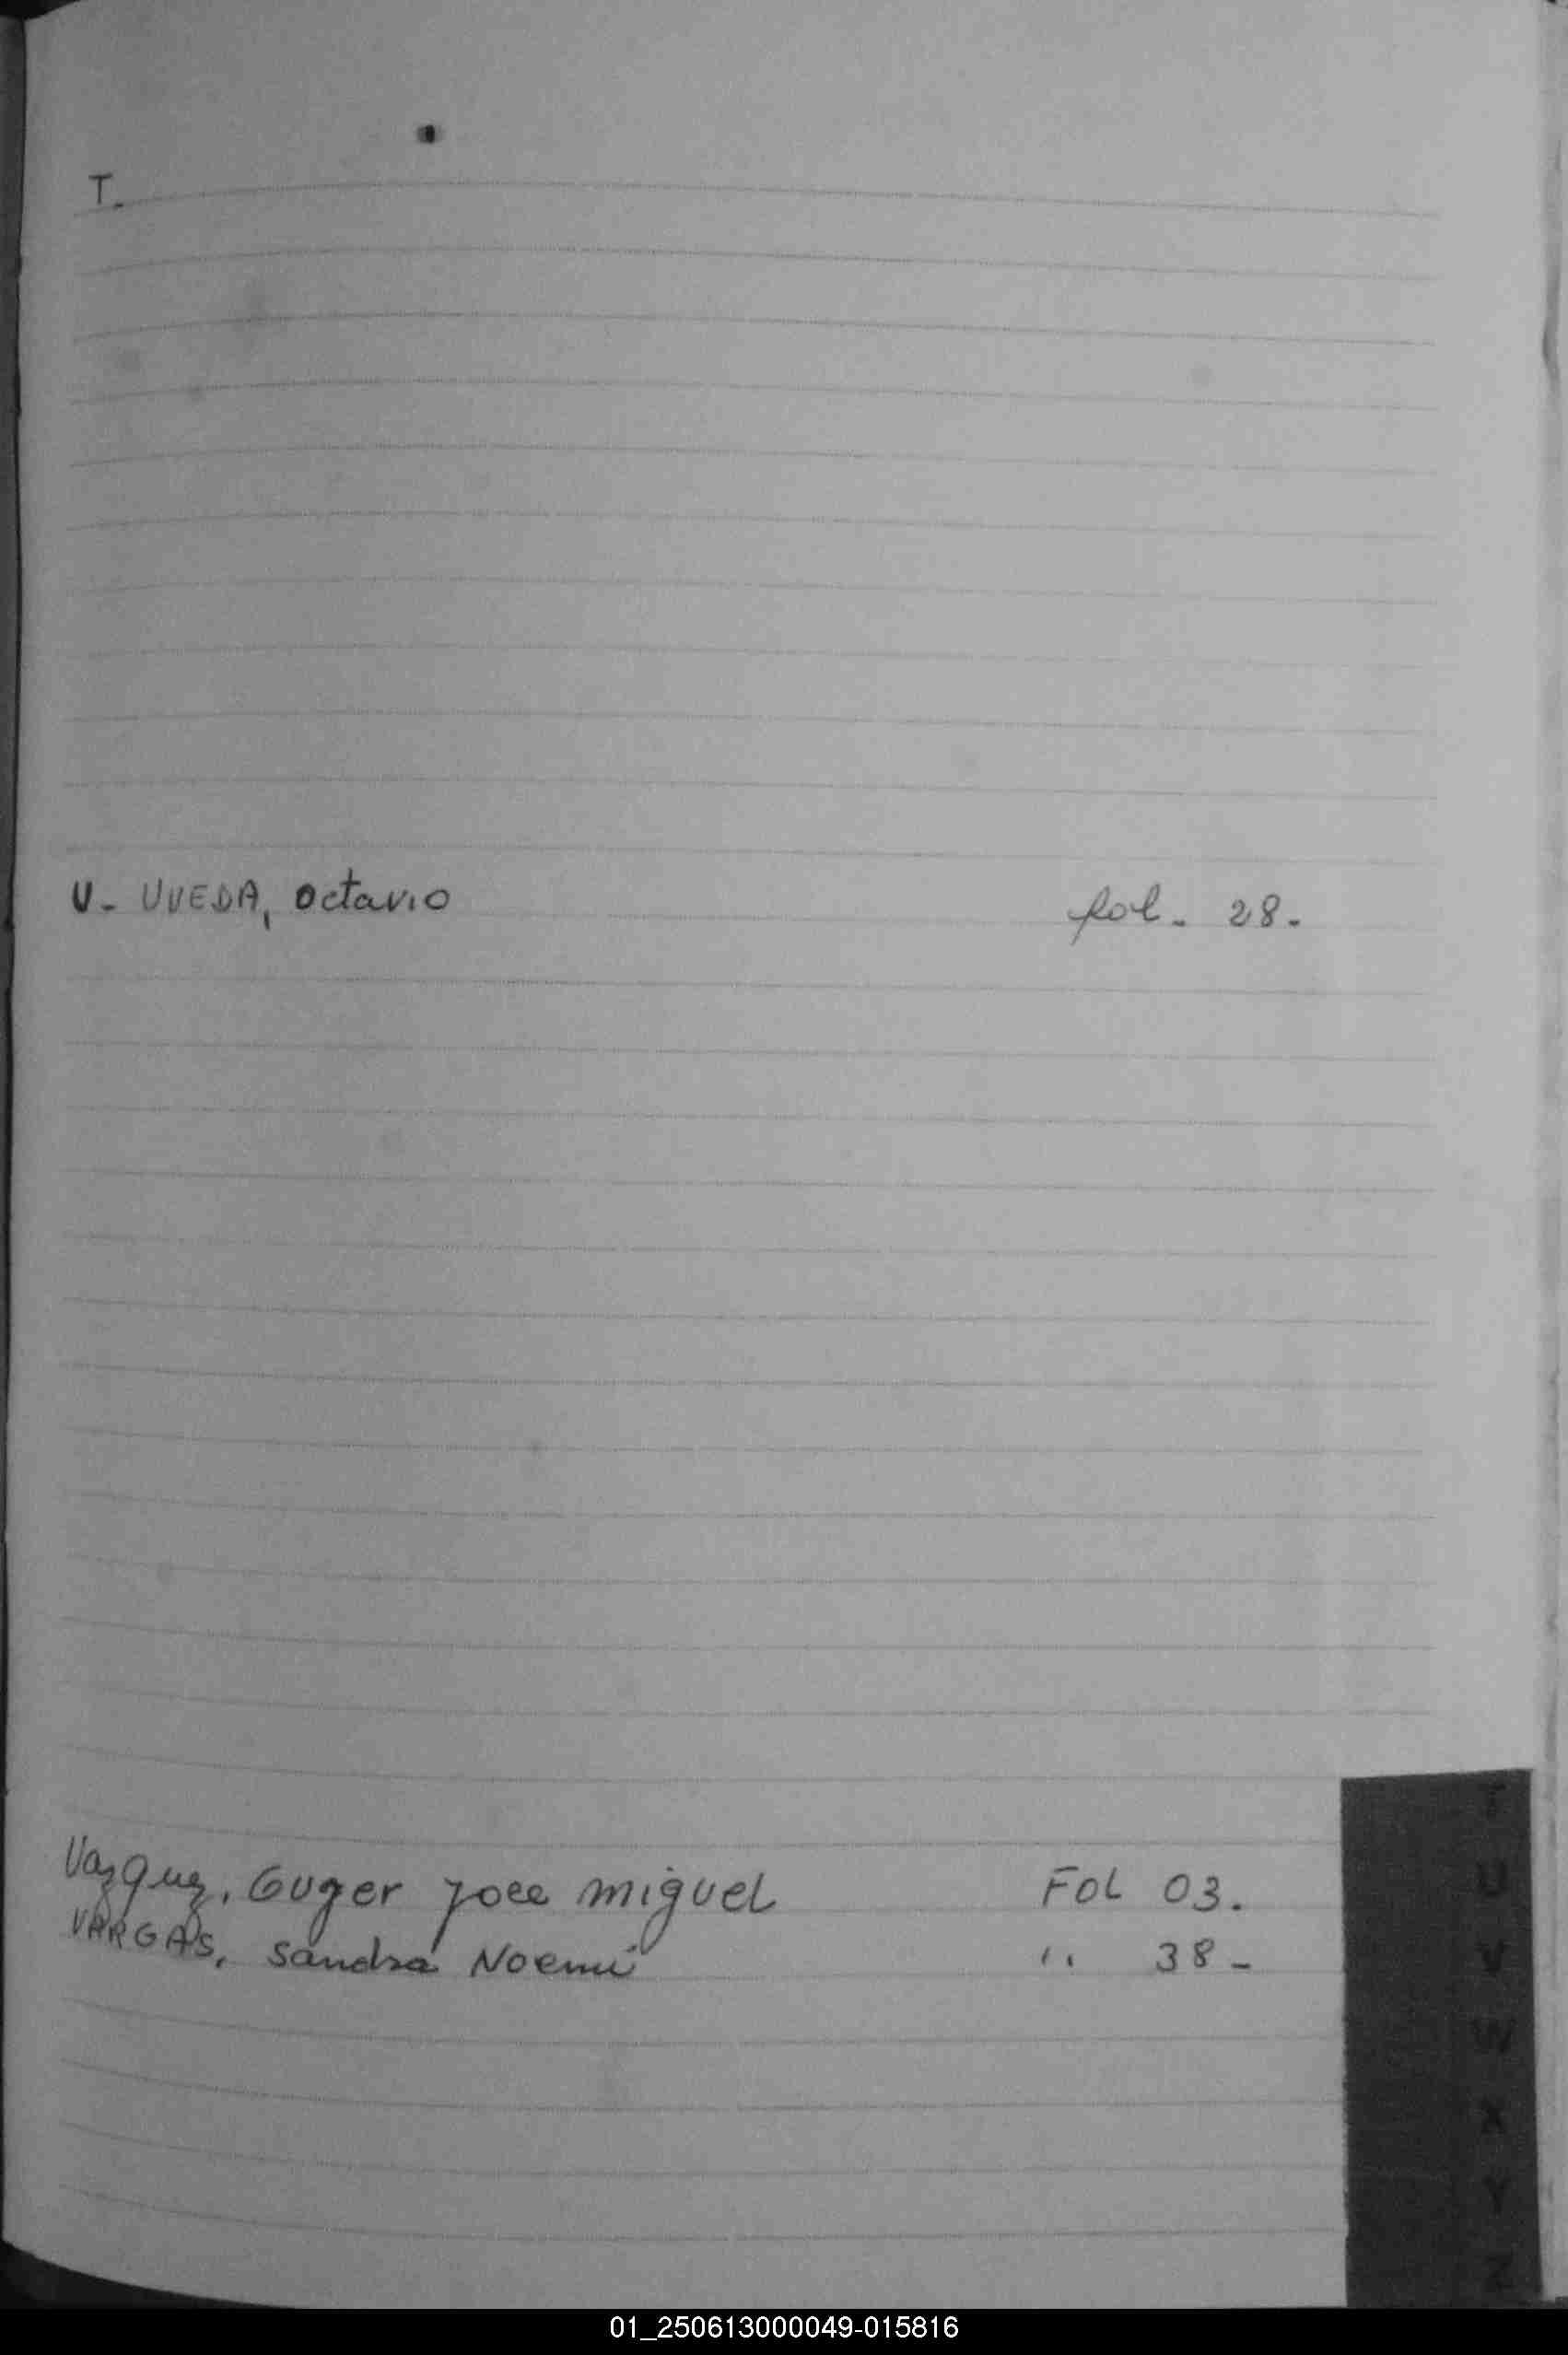 T.
U- UVEDA, Octavio fol- 28-
Vazquez, Guger Jose Miguel FOL 03.
VARGAS, Sandra Noemí " 38-
T
U
V
W
X
Y
Z
01_250613000049-015816